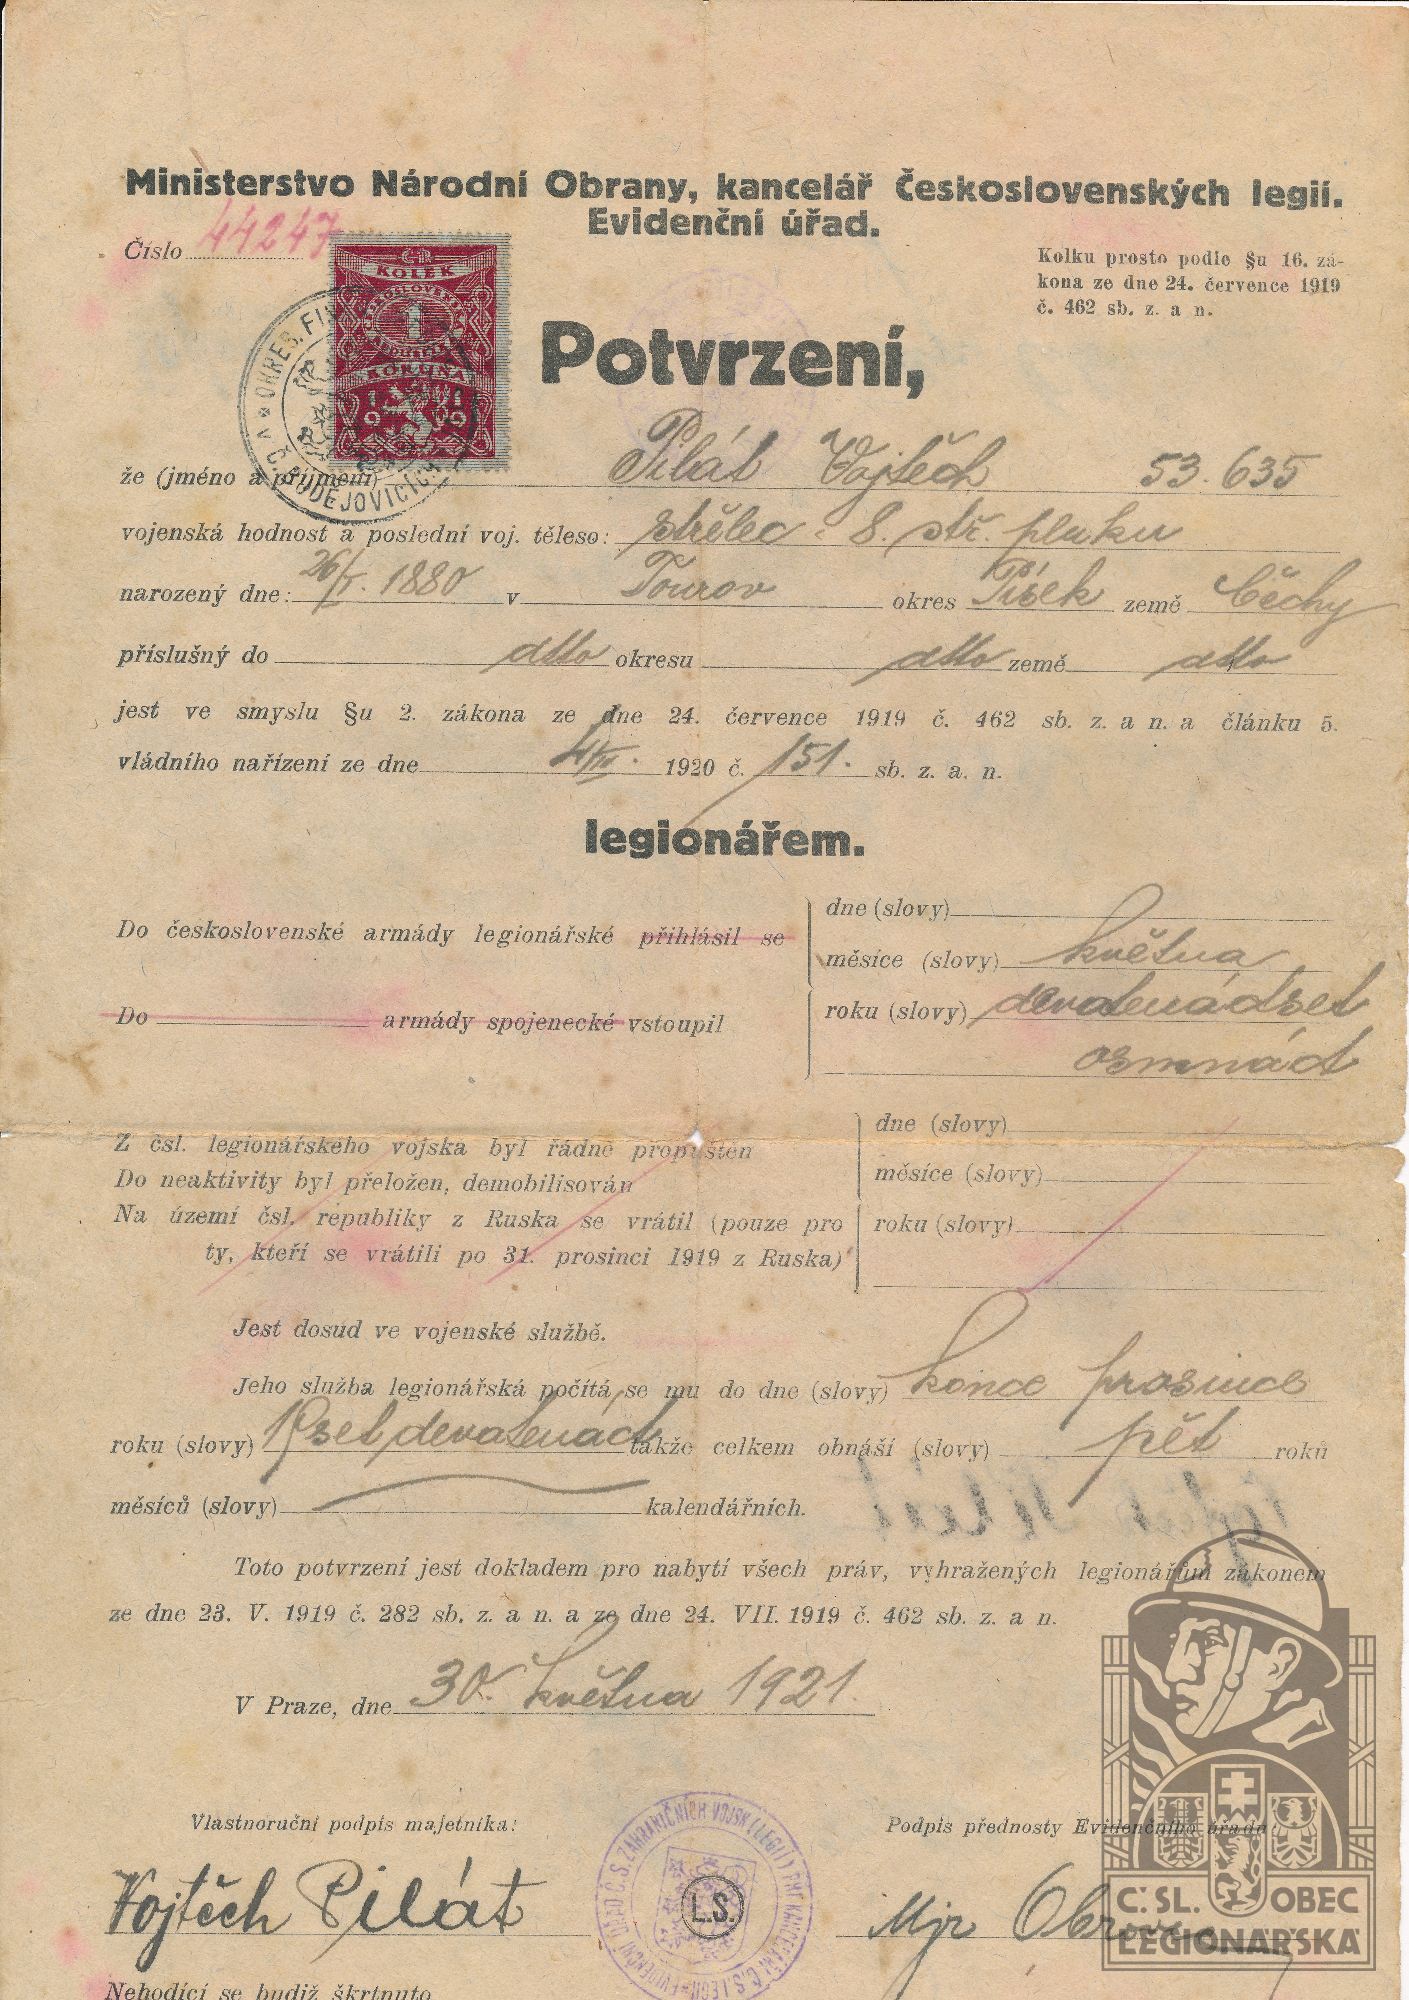 Ministerstvo Národní Obrany, kancelář Československých legií.
Evidenční úřad.
Číslo 44247
Kolku prosto podle §u 16. zá-
kona ze dne 24. července 1919
č. 462 sb. z. a n.
KOLEK
1
KORUNA
1919
OKRES. FIN
V Č. BUDĚJOVICÍCH
Potvrzení,
že (jméno a příjmení) Pilát Vojtěch 53.635
vojenská hodnost a poslední voj. těleso: střelec 8. stř. pluku
narozený dne: 26/I. 1880 v Tourov okres Písek země Čechy
příslušný do dtto okresu dtto země dtto
jest ve smyslu §u 2. zákona ze dne 24. července 1919 č. 462 sb. z. a n. a článku 5.
vládního nařízení ze dne 4/III. 1920 č. 151. sb. z. a. n.
legionářem.
Do československé armády legionářské přihlásil se
dne (slovy)
měsíce (slovy) května
Do armády spojenecké vstoupil
roku (slovy) devatenádset
osmnáct
Z čsl. legionářského vojska byl řádně propuštěn
Do neaktivity byl přeložen, demobilisován
Na území čsl. republiky z Ruska se vrátil (pouze pro
ty, kteří se vrátili po 31. prosinci 1919 z Ruska)
dne (slovy)
měsíce (slovy)
roku (slovy)
Jest dosud ve vojenské službě.
Jeho služba legionářská počítá se mu do dne (slovy) konce prosince
roku (slovy) 19set devatenáct takže celkem obnáší (slovy) pět roků
měsíců (slovy) kalendářních.
Toto potvrzení jest dokladem pro nabytí všech práv, vyhražených legionářům zákonem
ze dne 23. V. 1919 č. 282 sb. z. a n. a ze dne 24. VII. 1919 č. 462 sb. z. a n.
V Praze, dne 30. května 1921.
Vlastnoruční podpis majetníka:
Podpis přednosty Evidenčního úřadu
Vojtěch Pilát
L.S.
Mjr
Č.SL. OBEC
LEGIONÁŘSKÁ
Nehodící se budiž škrtnuto